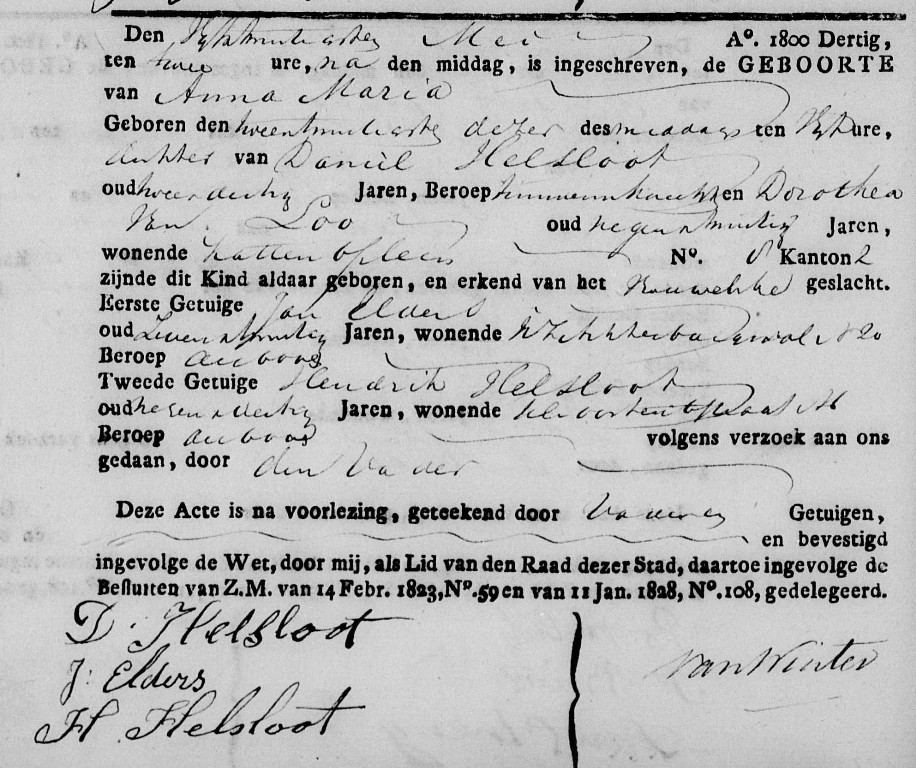 Den Vijfentwintigsten Mei A°. 1800 Dertig,
ten twee ure, na den middag, is ingeschreven, de GEBOORTE
van Anna Maria
Geboren den tweentwintigsten dezer des middags ten Vijf ure,
dochter van Daniel Helsloot
oud tweendertig Jaren, Beroep timmermansknecht en Dorothea
Van Loo oud negenentwintig Jaren,
wonende Kattenbplein N°. 8 Kanton 2
zijnde dit Kind aldaar geboren, en erkend van het Vrouwelijke geslacht.
Eerste Getuige Jan Elders
oud Zevenentwintig Jaren, wonende 20
Beroep als boven
Tweede Getuige Hendrik Helsloot
oud negenendertig Jaren, wonende
Beroep als boven volgens verzoek aan ons
gedaan, door den Vader
Deze Acte is na voorlezing, geteekend door Vader en Getuigen,
en bevestigd
ingevolge de Wet, door mij, als Lid van den Raad dezer Stad, daartoe ingevolge de
Besluiten van Z.M. van 14 Febr. 1823, N°. 59 en van 11 Jan. 1828, N°. 108, gedelegeerd.
D. Helsloot
J: Elders
H. Helsloot
van Winter